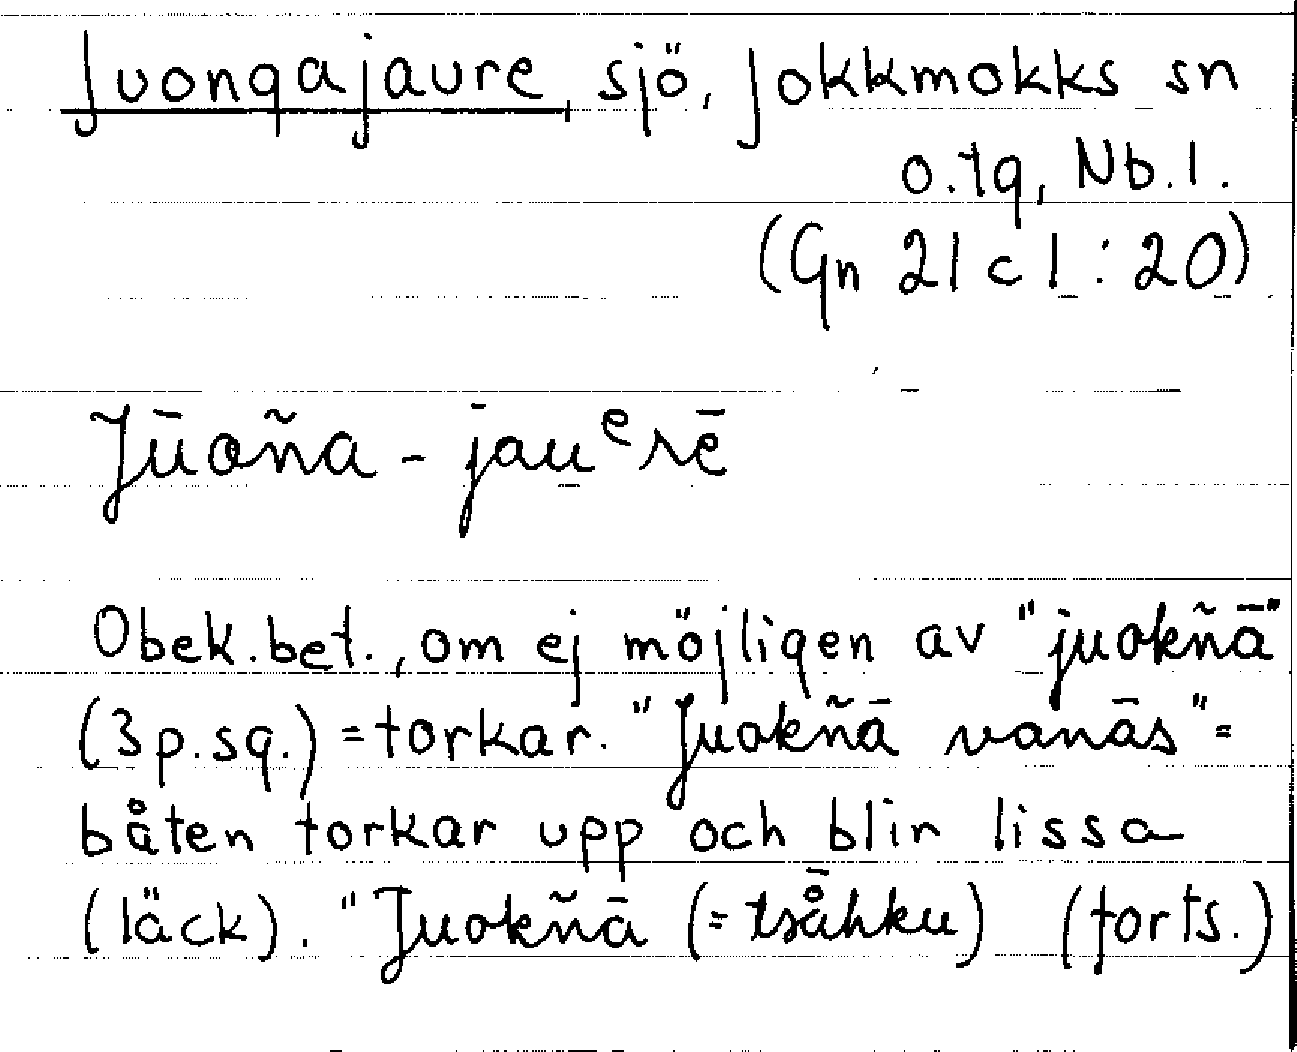 Juongajaure sjö, Jokkmokks sn
o. tg, Nb. l.
(Gn 21 c 1 : 20)
Jūoña - jauᵉrē
Obek. bet., om ej möjligen av "juokñā"
(3 p. sg.) = torkar. "Juokñā vanās" =
båten torkar upp och blir lissa
(läck). "Juokñā (= tså̄hku) (forts.)